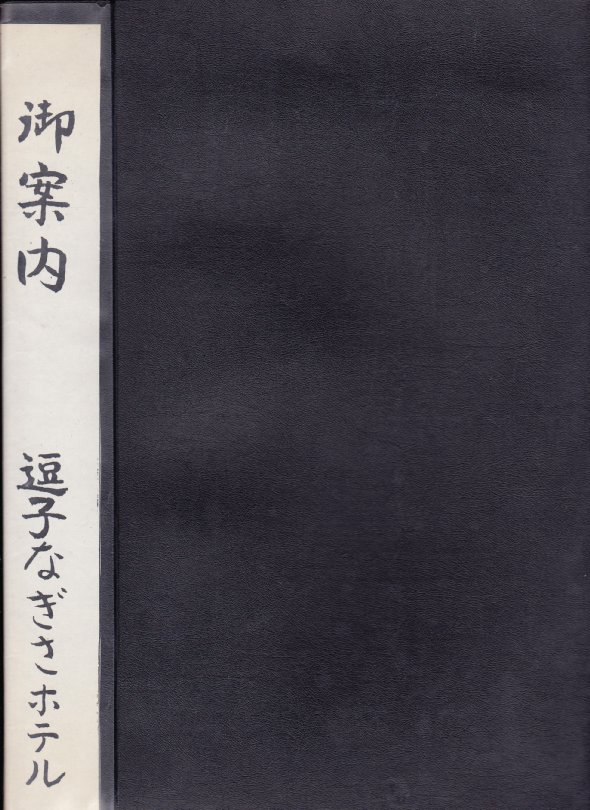 御案内
逗子なぎさホテル